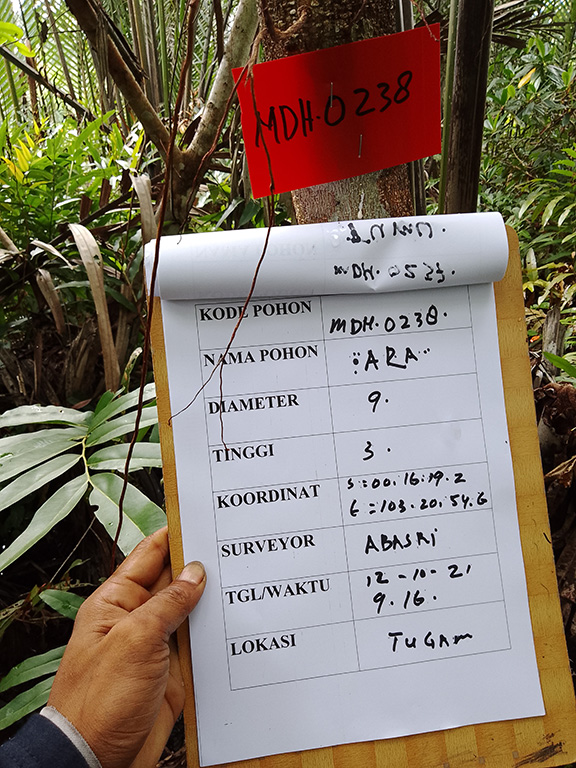 MDH.0238
MDH.0523.
KODE POHON MDH.0238.
NAMA POHON ARA
DIAMETER 9.
TINGGI 3.
KOORDINAT S=00.16.19.2
E=103.20.54.6
SURVEYOR ABASRI
TGL/WAKTU 12-10-21
9.16.
LOKASI TUGAM